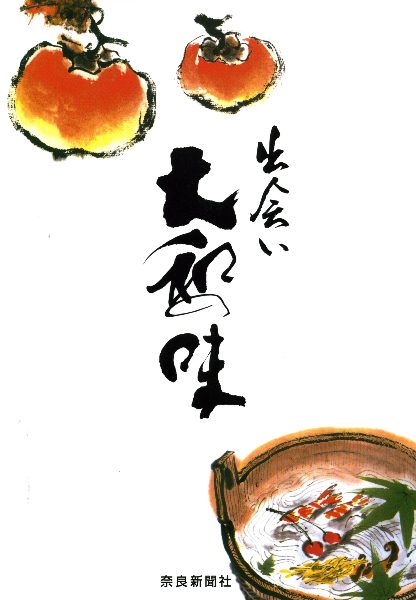 出会い
大和の味
奈良新聞社